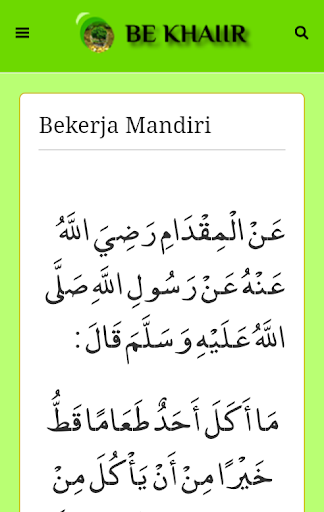 BE KHAIIR
Bekerja Mandiri
عَنْ الْمِقْدَامِ رَضِيَ اللَّهُ
عَنْهُ عَنْ رَسُولِ اللَّهِ صَلَّى
اللَّهُ عَلَيْهِ وَسَلَّمَ قَالَ :
مَا أَكَلَ أَحَدٌ طَعَامًا قَطُّ
خَيْرًا مِنْ أَنْ يَأْكُلَ مِنْ